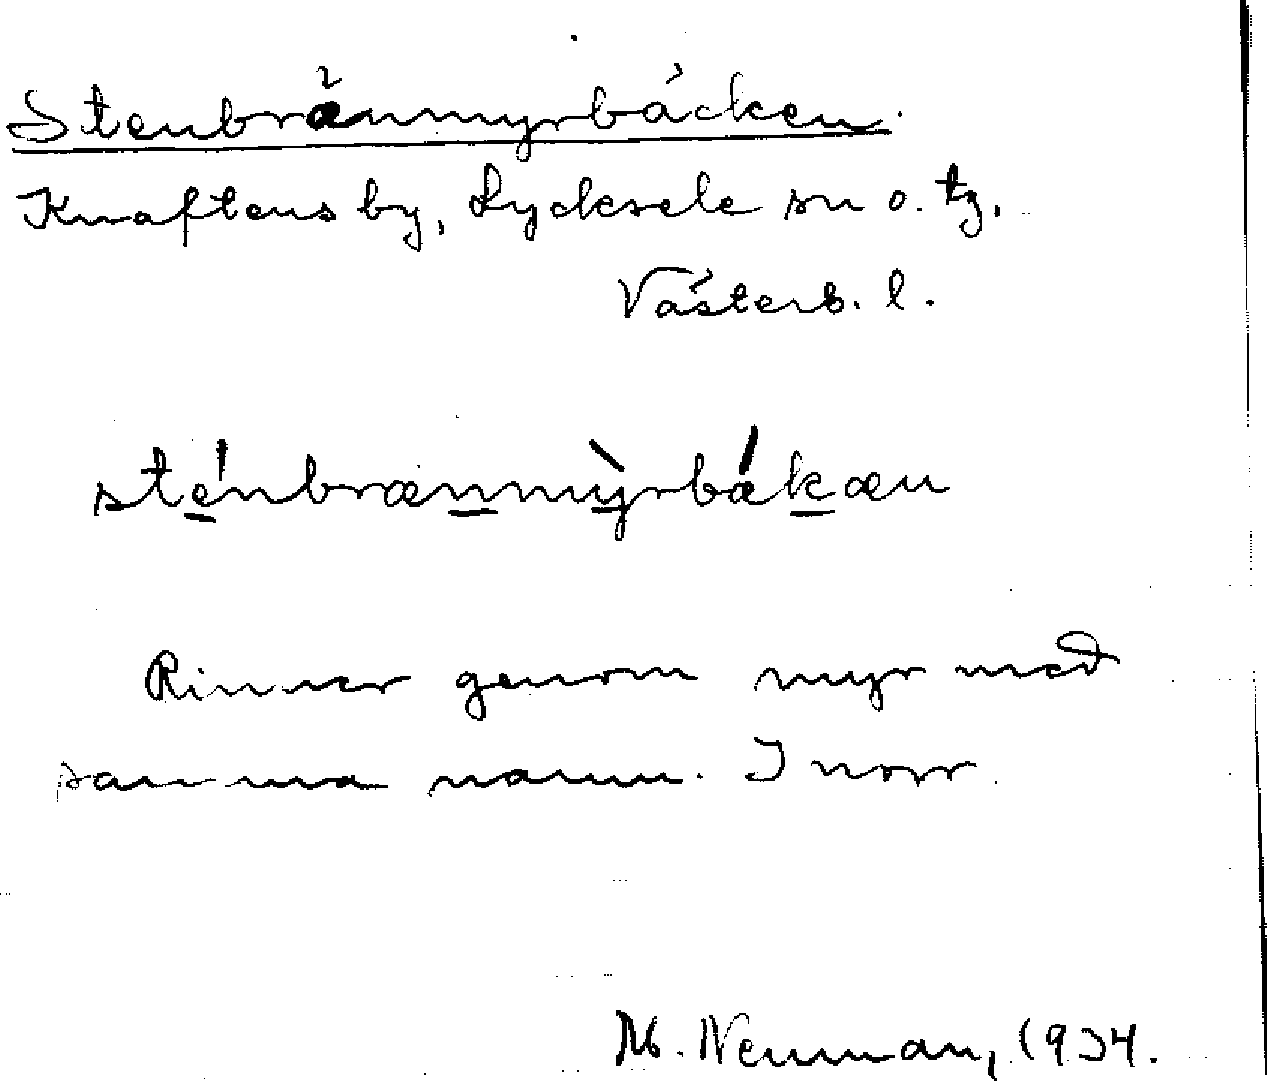 Stenbrännmyrbäcken.
Knaftens by, Lycksele sn o. tg.
Västerb. l.
sténbrænmỳrbǽkæn
Rinner genom myr med
samma namn. I norr.
M. Neuman, 1934.